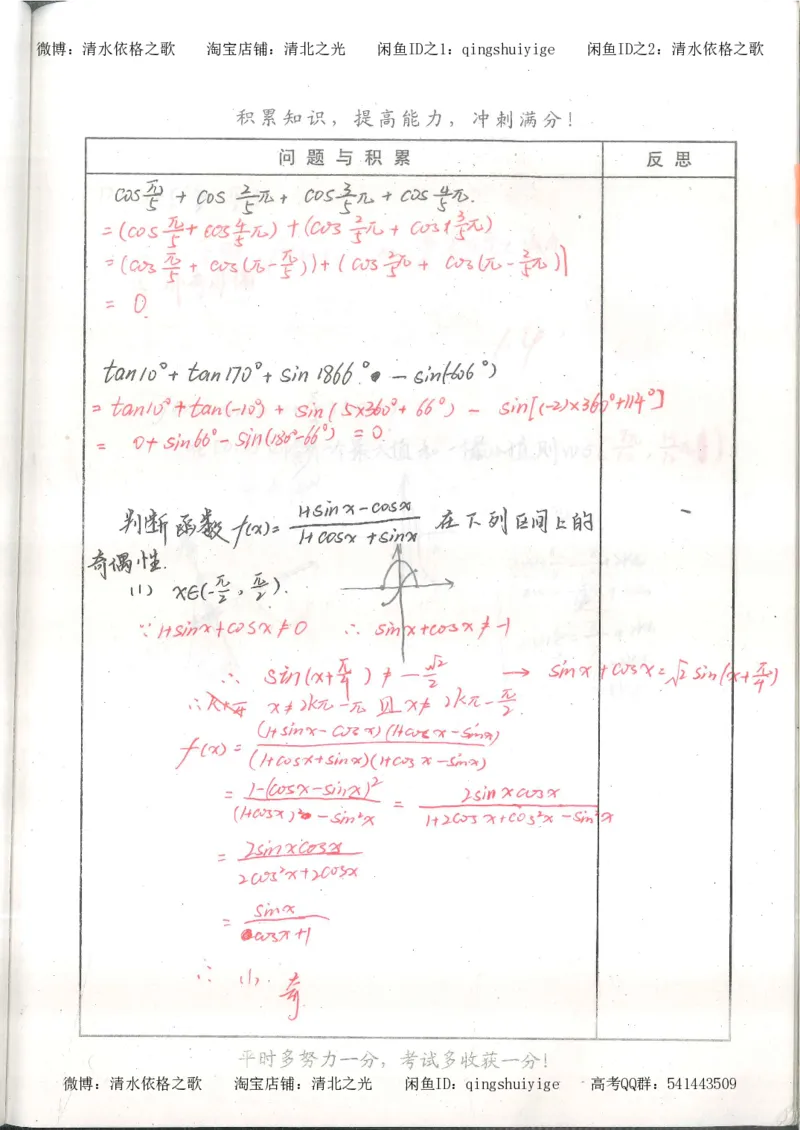 微博：清水依格之歌 淘宝店铺：清北之光 闲鱼ID之1：qingshuiyige 闲鱼ID之2：清水依格之歌
积累知识，提高能力，冲刺满分！
问题与积累 反思
cos π/5 + cos 2/5 π + cos 3/5 π + cos 4/5 π.
= (cos π/5 + cos 4/5 π) + (cos 2/5 π + cos 3/5 π)
= (cos π/5 + cos(π - π/5)) + (cos 2/5 π + cos(π - 2/5 π))
= 0.
tan10° + tan170° + sin1866° - sin(-606°)
= tan10° + tan(-10°) + sin(5×360° + 66°) - sin[(-2)×360° + 114°]
= 0 + sin66° - sin(180° - 66°) = 0
判断函数 f(x) = (1+sinx-cosx)/(1+cosx+sinx) 在下列区间上的
奇偶性.
(1) x∈(-π/2, π/2).
∵ 1+sinx+cosx≠0 ∴ sinx+cosx≠-1
∴ sin(x+π/4) ≠ -√2/2 → sinx+cosx=√2 sin(x+π/4)
∴ x≠2kπ-π 且 x≠2kπ-π/2.
f(x) = (1+sinx-cosx)(1+cosx-sinx)/(1+cosx+sinx)(1+cosx-sinx)
= 1-(cosx-sinx)²/(1+cosx)²-sin²x = 2sinxcosx/1+2cosx+cos²x-sin²x
= 2sinxcosx/2cos²x+2cosx
= sinx/cosx+1
∴ (1). 奇
平时多努力一分，考试多收获一分！
微博：清水依格之歌 淘宝店铺：清北之光 闲鱼ID：qingshuiyige 高考QQ群：541443509